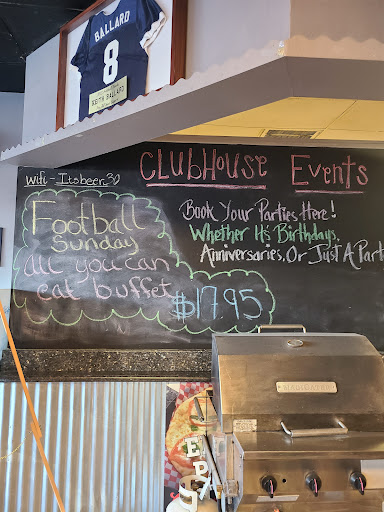 BALLARD
8
KEITH BALLARD
Wifi - Itsbeer30
CLUBHOUSE Events
Football
Sunday
all you can
eat buffet
$17.95
Book Your Parties Here!
Whether It's Birthdays,
Anniversaries, Or Just A Part